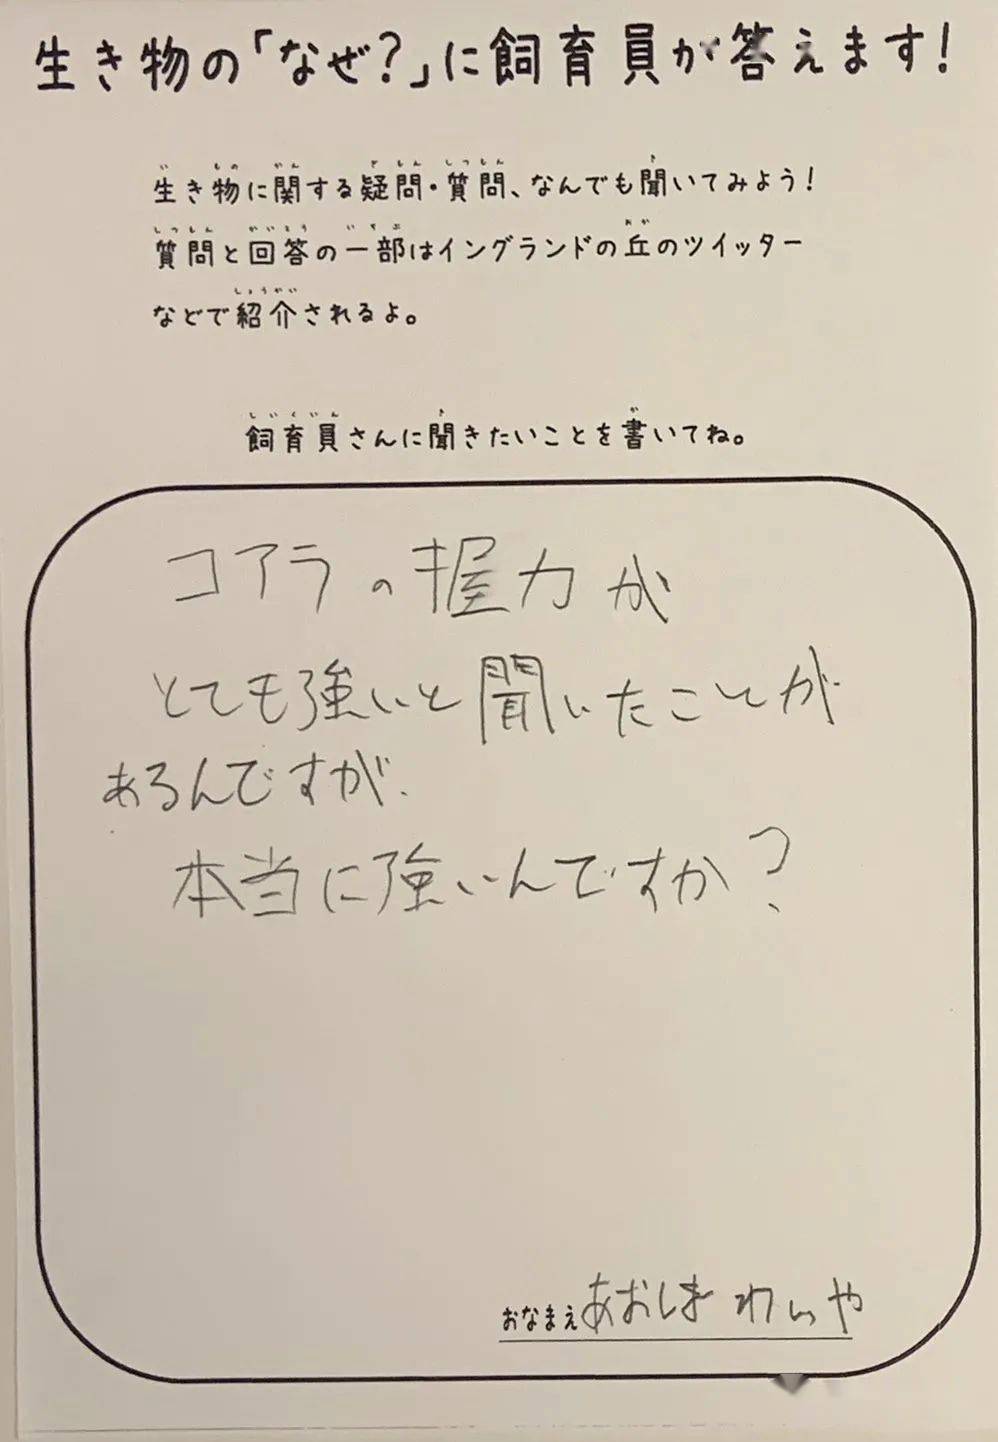 生き物の「なぜ?」に飼育員が答えます!
生き物に関する疑問・質問、なんでも聞いてみよう!
質問と回答の一部はイングランドの丘のツイッター
などで紹介されるよ。
飼育員さんに聞きたいことを書いてね。
コアラの握力が
とても強いと聞いたことが
あるんですが、
本当に強いんですか?
おなまえ あおしま